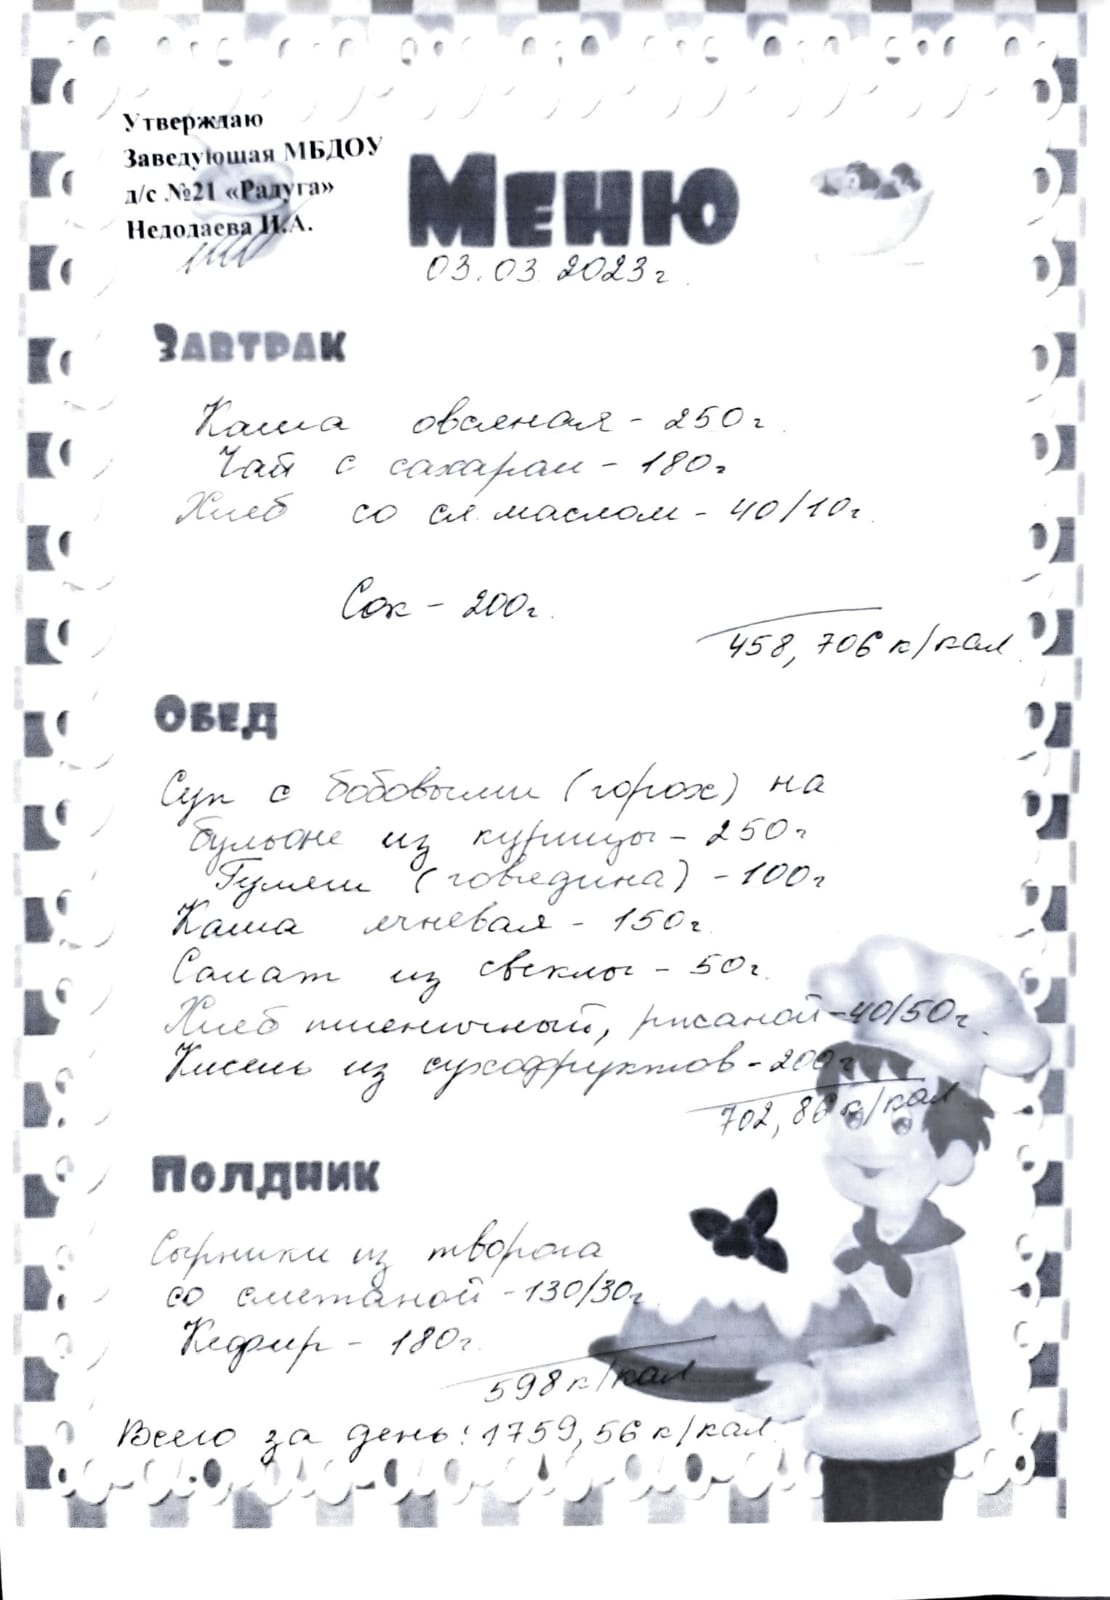 Утверждаю
Заведующая МБДОУ
д/с №21 «Радуга»
Недодаева И.А.
Меню
03.03 2023г.
Завтрак
Каша овсяная - 250г.
Чай с сахаром - 180г
Хлеб со сл. маслом - 40/10г.
Сок - 200г.
458,706 к/кал
Обед
Суп с бобовыми (горох) на
бульоне из курицы - 250г
Гуляш (говядина) - 100г
Каша ячневая - 150г.
Салат из свеклы - 50г.
Хлеб пшеничный, ржаной - 40/50г.
Кисель из сухофруктов - 200г
702,86 к/кал
Полдник
Сырники из творога
со сметаной - 130/30г.
Кефир - 180г.
598 к/кал
Всего за день: 1759,56 к/кал